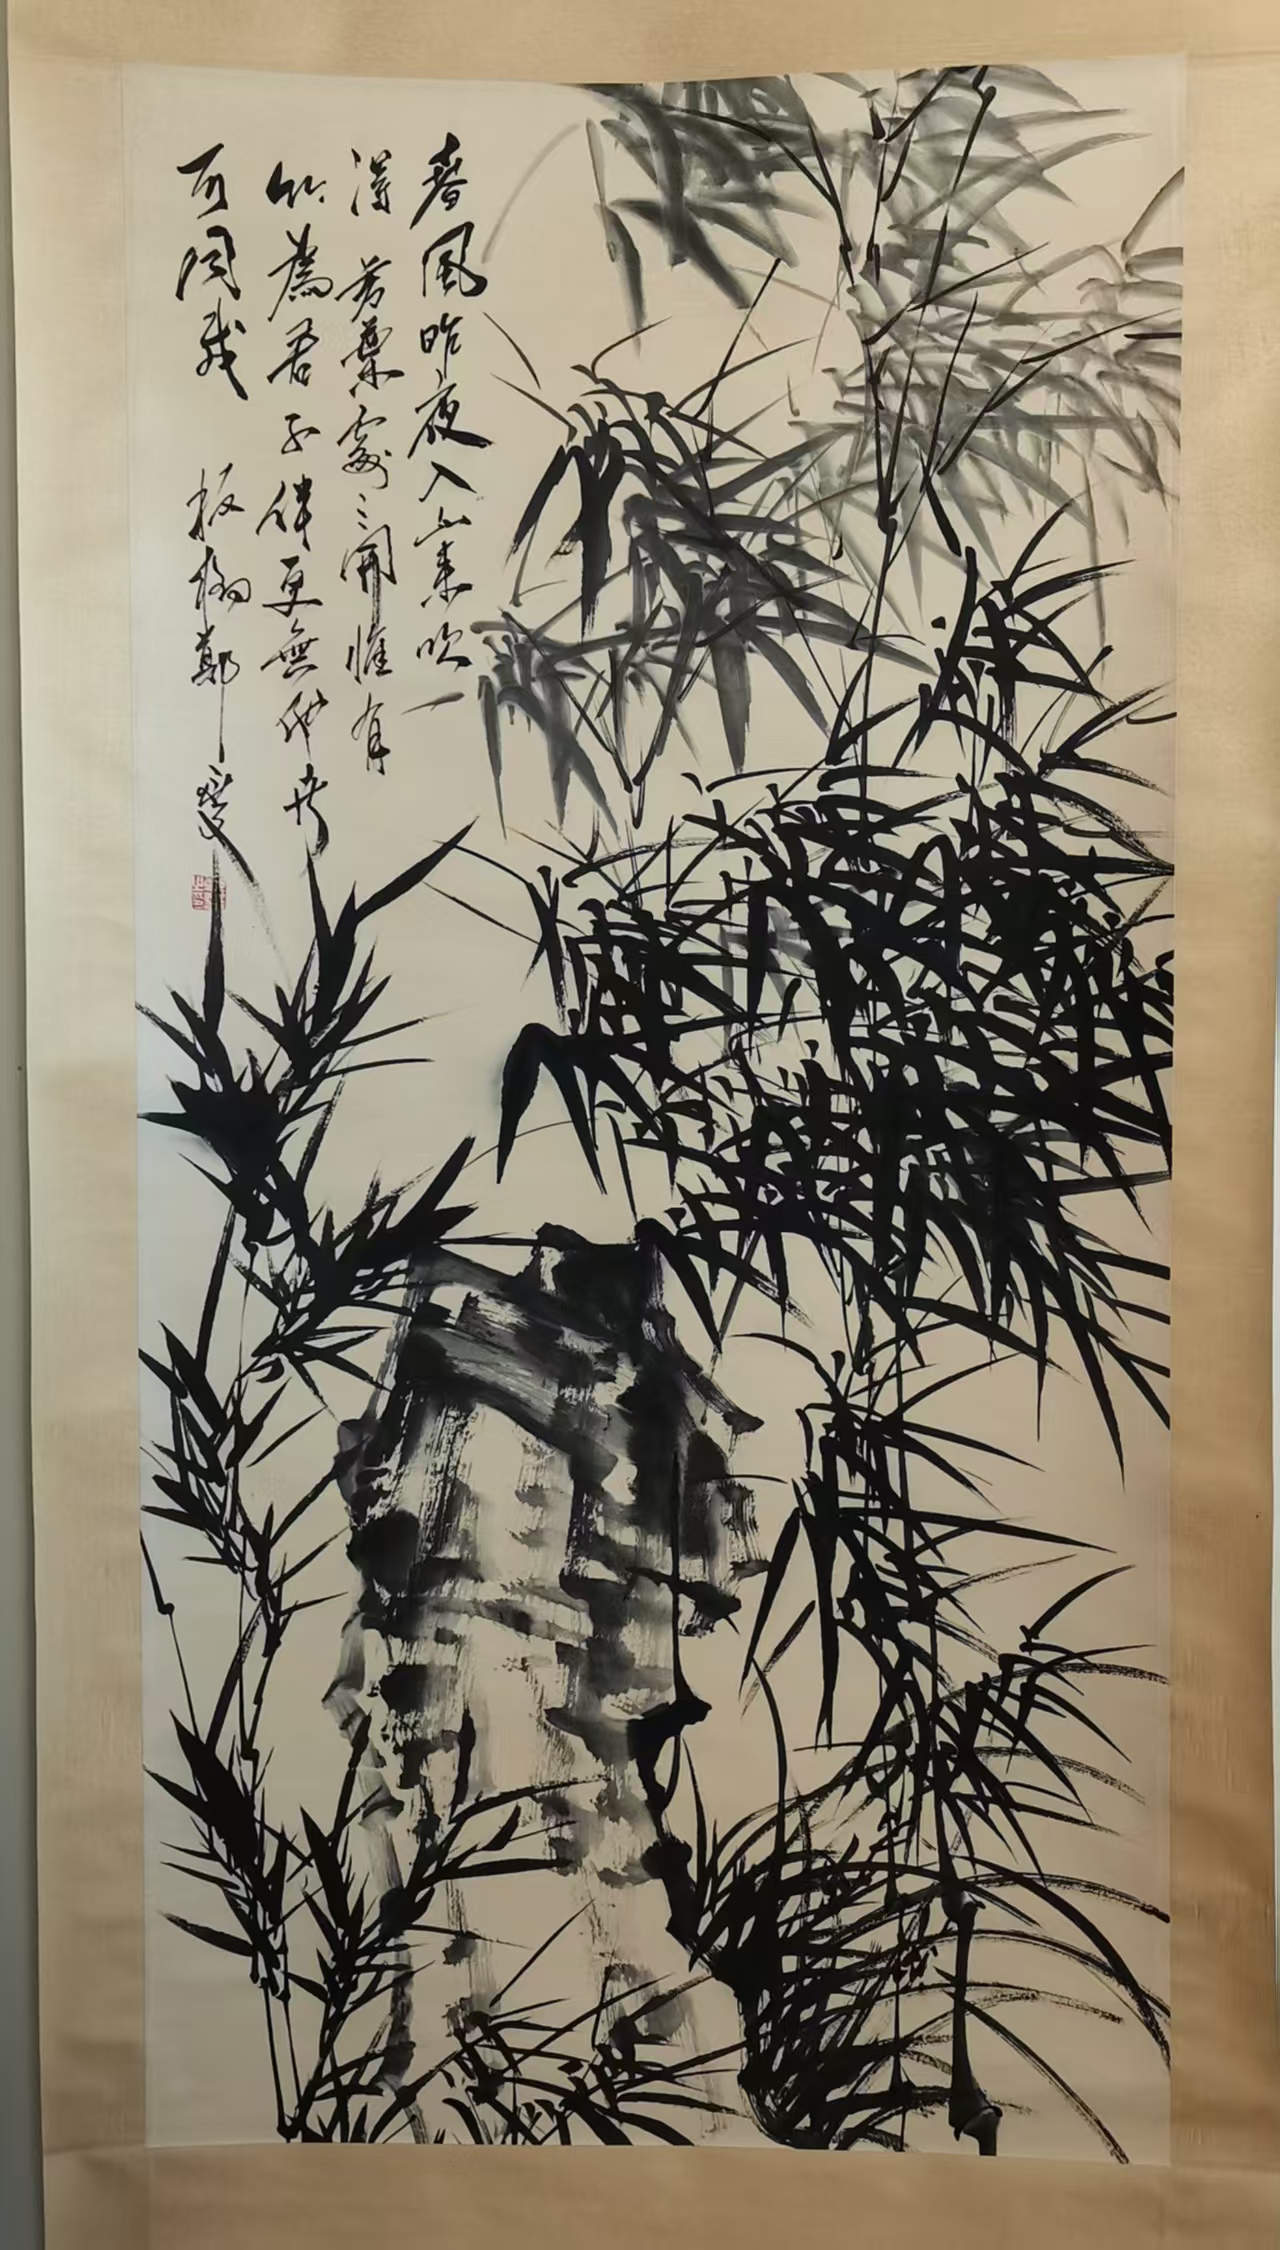 春風昨夜入山來吹
得芳蘭處〻開惟有
竹為君子伴更無他卉
可同栽 板橋鄭燮